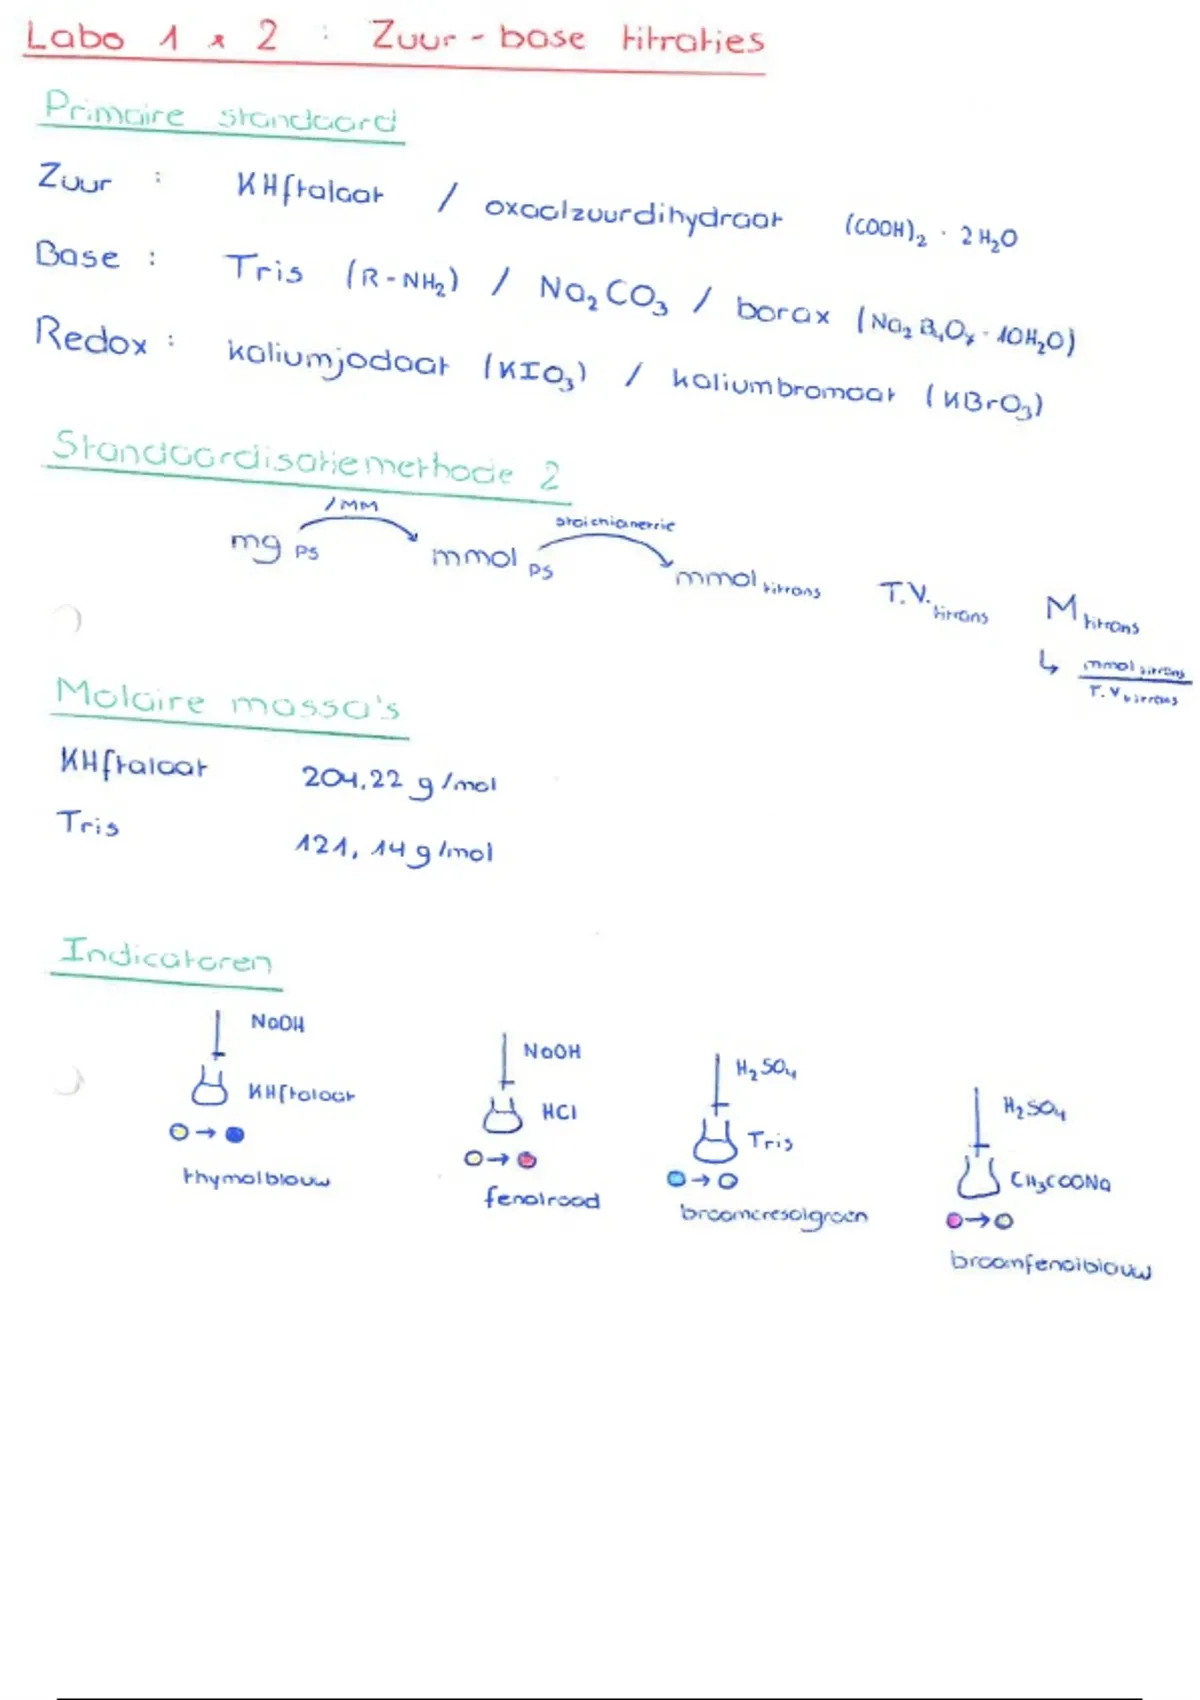 Labo 1 & 2 : Zuur-base titraties
Primaire standaard
Zuur : KHftalaat / oxaalzuurdihydraat (COOH)₂ · 2H₂O
Base : Tris (R-NH₂) / Na₂CO₃ / borax (Na₂B₄O₇ · 10H₂O)
Redox : kaliumjodaat (KIO₃) / kaliumbromaat (KBrO₃)
Standaardisatiemethode 2
/MM stoichiometrie
mg PS mmol PS mmol titrans T.V. titrans M titrans
↳ mmol titrans / T.V titrans
Molaire massa's
KHftalaat 204,22 g/mol
Tris 121,14 g/mol
Indicatoren
NaOH NaOH H₂SO₄ H₂SO₄
KHftalaat HCl Tris CH₃COONa
→ → → →
thymolblauw fenolrood broomcresolgroen broomfenolblauw